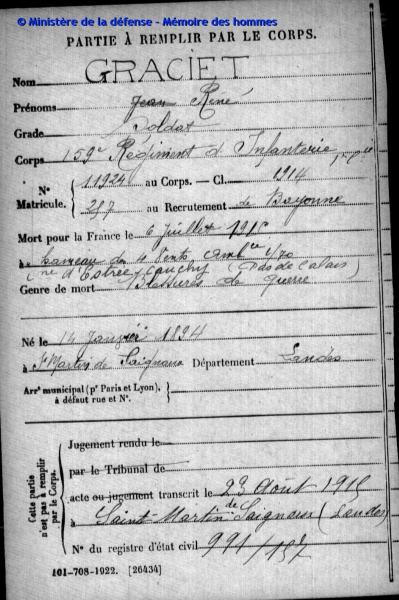 © Ministère de la défense - Mémoire des hommes
PARTIE À REMPLIR PAR LE CORPS.
Nom GRACIET
Prénoms Jean René
Grade Soldat
Corps 159e Régiment d'Infanterie,
N° 11924 au Corps. — Cl. 1914
Matricule. 287 au Recrutement de Bayonne
Mort pour la France le 6 juillet 1915
à hameau des 4 Vents, ambce 1/70
(ne d'Estrée-Cauchy (Pas de Calais)
Genre de mort Blessures de guerre
Né le 14 Janvier 1894
à St Martin de Seignanx Département Landes
Arrt municipal (pr Paris et Lyon),
à défaut rue et N°.
Cette partie n'est pas à remplir par le Corps.
Jugement rendu le
par le Tribunal de
acte ou jugement transcrit le 23 Août 1915
à Saint-Martin de Seignanx (Landes)
N° du registre d'état civil 991/157
101-708-1922. [26434]